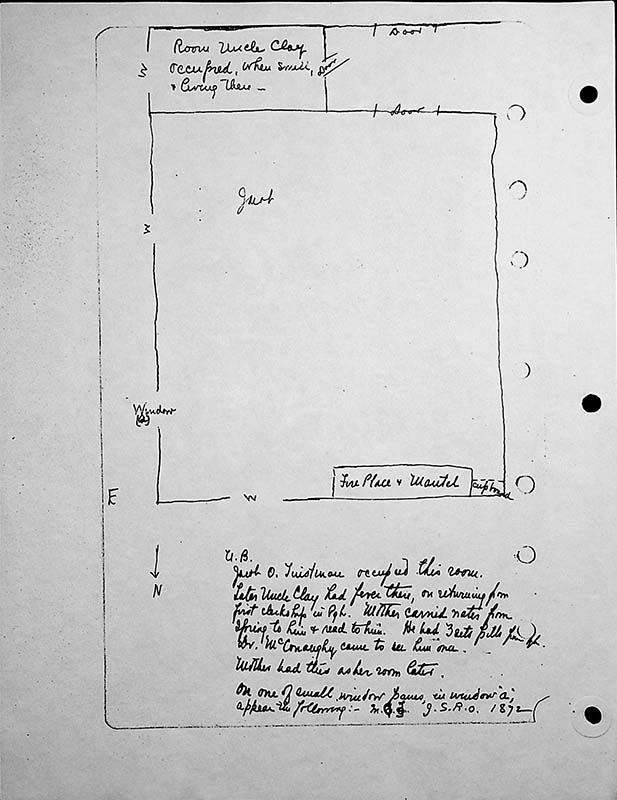 Door
Room Uncle Clay
occupied, when small,
& living there —
Door
W
Door
Jacob
W
Window
(a)
E
W
Fire Place & Mantel
cupboard
N
N.B.
Jacob O. occupied this room.
Later Uncle Clay had fever there, on returning from
first clerkship in Pgh. Mother carried water from
spring to him & read to him. He had 3 sets pills from Pgh.
Dr. McConaughy came to see him once.
Mother had this as her room later.
On one of small window panes, in window a,
appear the following:- J.S.R.O. 1872